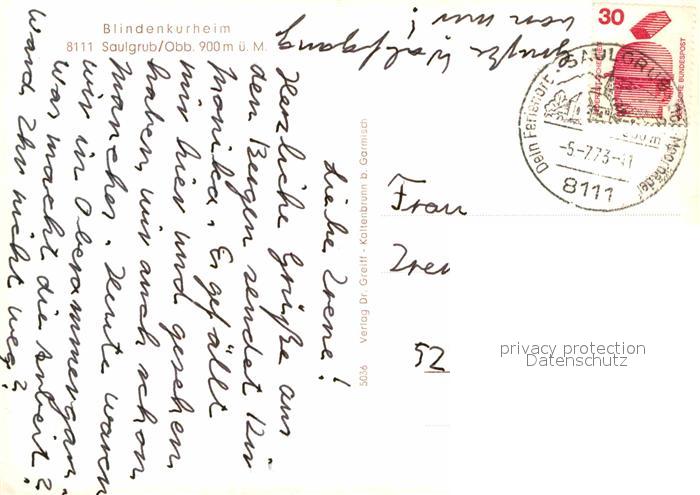 Blindenkurheim
8111 Saulgrub/Obb. 900 m ü. M.
Liebe Irene!
Herzliche Grüße aus
den Bergen sendet Dir
Monika. Es gefällt
mir hier und gesehen
haben wir auch schon
manches. Heute waren
wir in Oberammergau.
Was macht die Arbeit?
Ward Ihr nicht weg?
Grüße Wolfgang
von mir!
5036 Verlag Dr. Greiff - Kaltenbrunn b. Garmisch
30
DEUTSCHE BUNDESPOST
SAULGRUB
Dein Ferienort
Moorbäder
-5-7.73-11
8111
Frau
Iren
52
privacy protection
Datenschutz